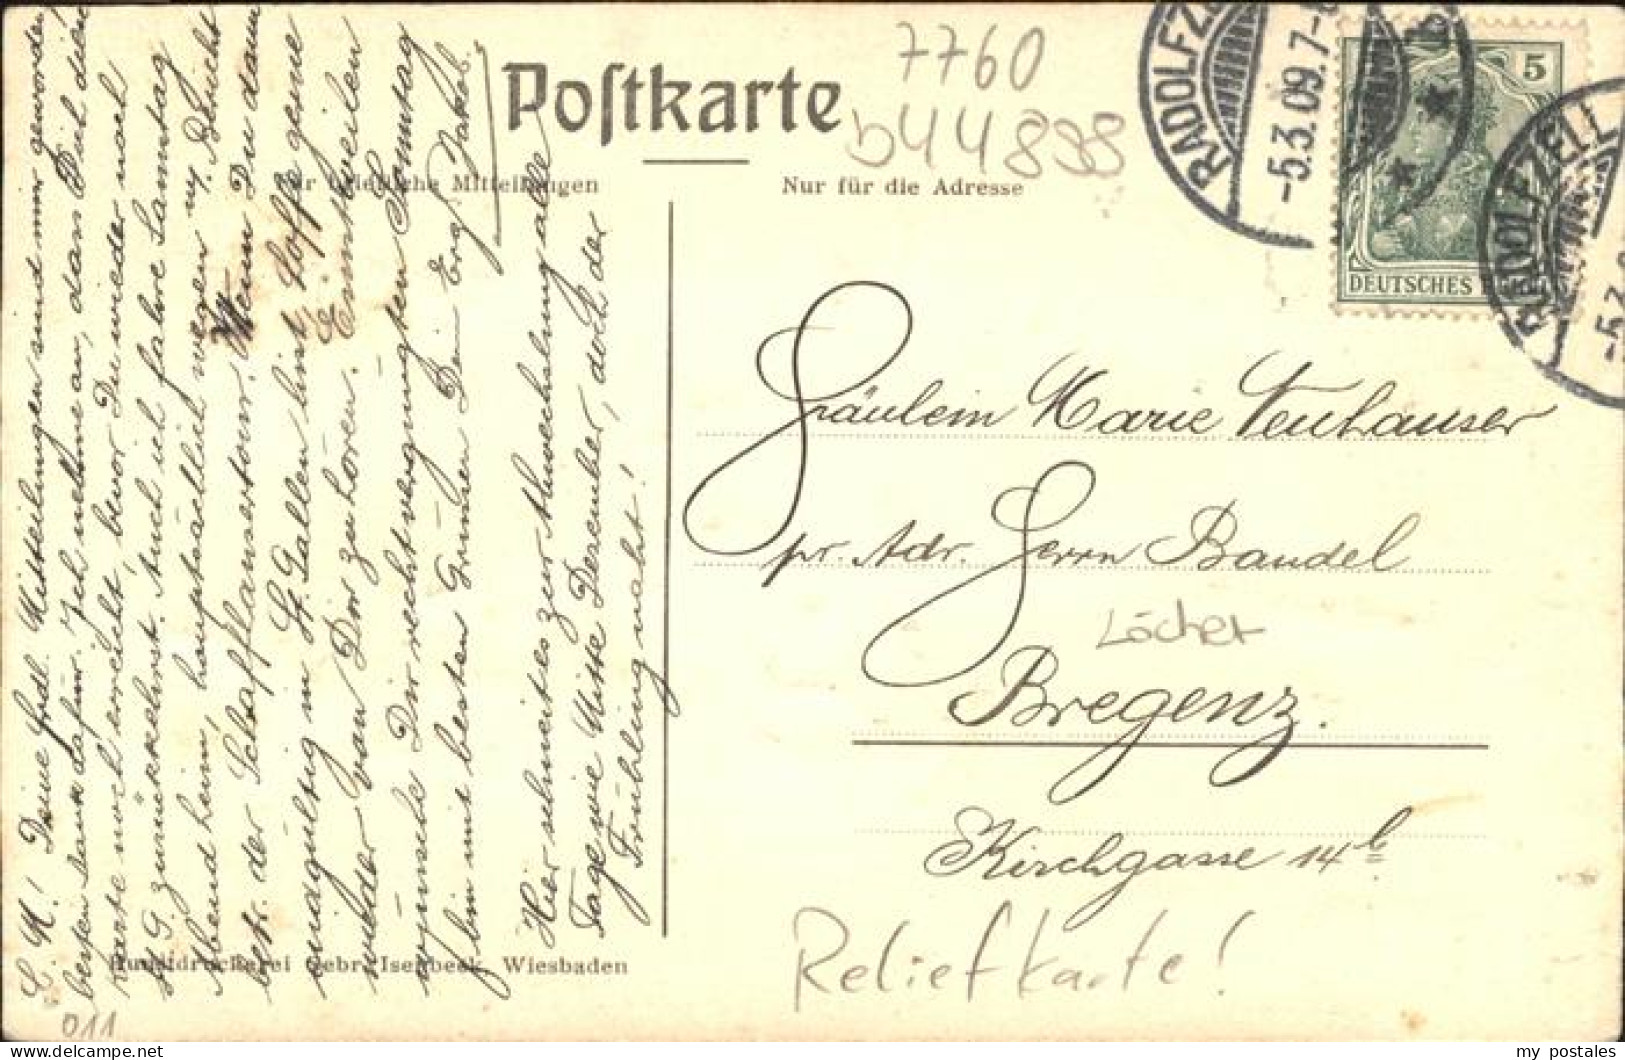 7760
b44898
Postkarte
Für briefliche Mitteilungen
Nur für die Adresse
RADOLFZELL
-5.3.09.7-8
5
DEUTSCHES REICH
RADOLFZELL
L. M! Deine frdl. Mitteilungen sind mir geworden,
besten Dank dafür. Ich nehme an, dass Dich diese
Karte noch erreicht, bevor Du wieder nach
St. G. zurückkehrst. Auch ich fahre Samstag
Abend heim, hauptsächlich wegen m. Bericht
betr. der Schaffhausertour. Wenn Du dann
endgültig in St. Gallen bist hoffe gerne
wieder von Dir zu hören. Einstweilen
wünsche Dir recht vergnügten Sonntag
bin mit besten Grüssen Dein Erg. Jakob.
Hier schneit es zur Abwechslung alle
Tage wie Mitte Dezember, doch der
Frühling naht!
Fräulein Marie Neuhauser
pr. Adr. Herrn Bandel
Löcher
Bregenz.
Kirchgasse 14 b
Reliefkarte!
Kunstdruckerei Gebr. Isenbeck, Wiesbaden
011
my_postales